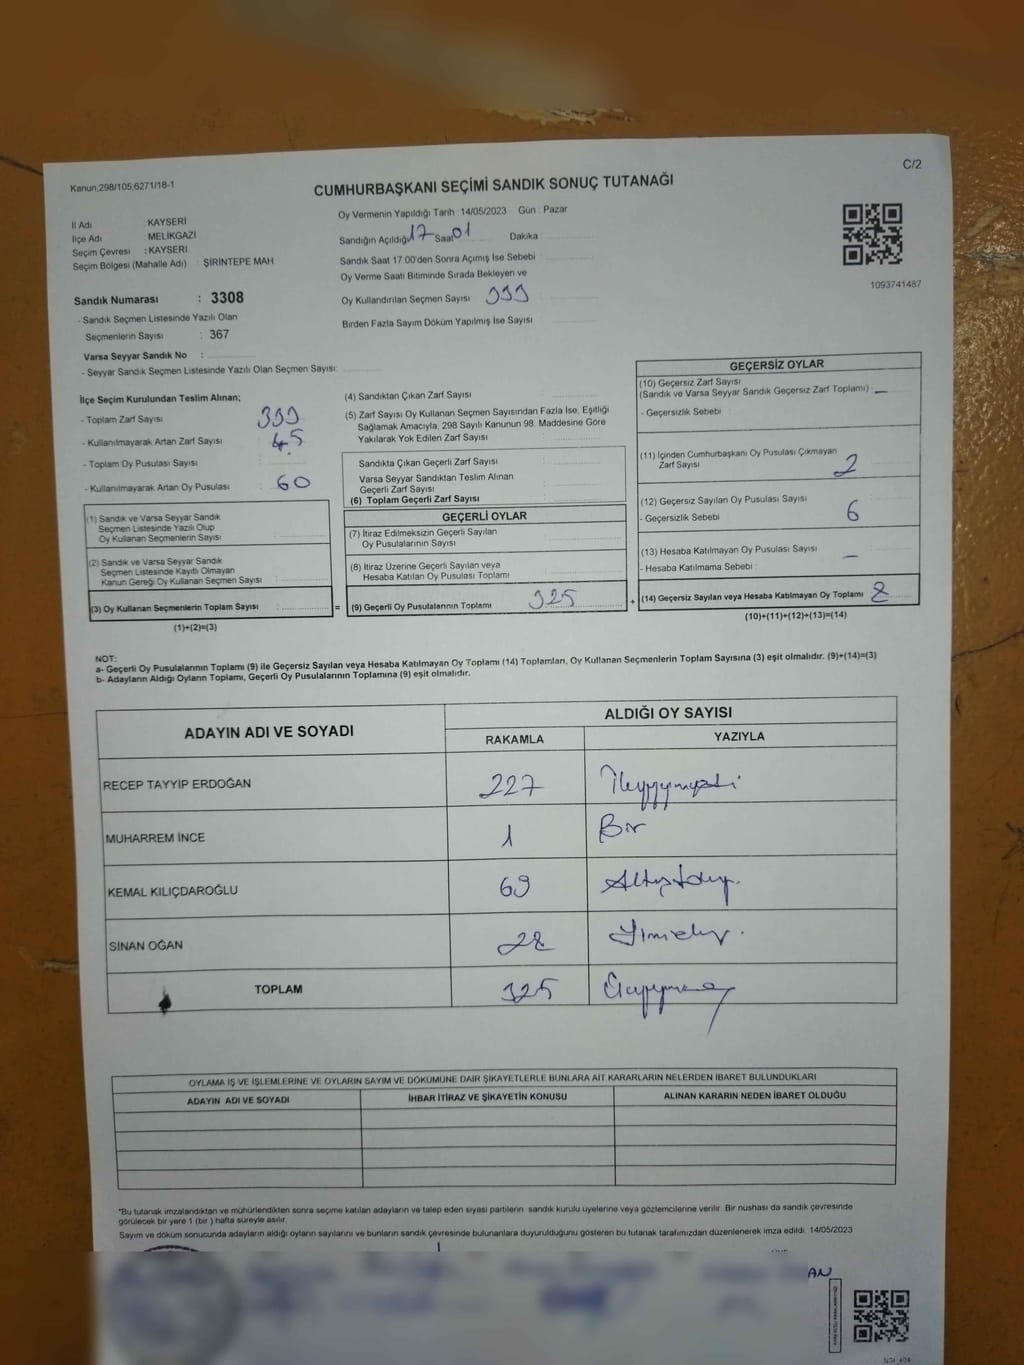 C/2
Kanun,298/105,6271/18-1
CUMHURBAŞKANI SEÇİMİ SANDIK SONUÇ TUTANAĞI
İl Adı KAYSERİ
İlçe Adı : MELİKGAZİ
Seçim Çevresi : KAYSERİ
Seçim Bölgesi (Mahalle Adı) : ŞİRİNTEPE MAH.
Sandık Numarası : 3308
- Sandık Seçmen Listesinde Yazılı Olan
Seçmenlerin Sayısı : 367
Varsa Seyyar Sandık No :
- Seyyar Sandık Seçmen Listesinde Yazılı Olan Seçmen Sayısı:
Oy Vermenin Yapıldığı Tarih : 14/05/2023 Gün : Pazar
Sandığın Açıldığı 17 Saat 01 Dakika :
Sandık Saat 17:00'den Sonra Açılmış İse Sebebi
Oy Verme Saati Bitiminde Sırada Bekleyen ve
Oy Kullandırılan Seçmen Sayısı 333
Birden Fazla Sayım Döküm Yapılmış İse Sayısı
1093741487
İlçe Seçim Kurulundan Teslim Alınan;
- Toplam Zarf Sayısı
- Kullanılmayarak Artan Zarf Sayısı 45
- Toplam Oy Pusulası Sayısı
- Kullanılmayarak Artan Oy Pusulası 60
(1) Sandık ve Varsa Seyyar Sandık
Seçmen Listesinde Yazılı Olup
Oy Kullanan Seçmenlerin Sayısı
(2) Sandık ve Varsa Seyyar Sandık
Seçmen Listesinde Kayıtlı Olmayan
Kanun Gereği Oy Kullanan Seçmen Sayısı
(3) Oy Kullanan Seçmenlerin Toplam Sayısı : =
(1)+(2)=(3)
(4) Sandıktan Çıkan Zarf Sayısı
(5) Zarf Sayısı Oy Kullanan Seçmen Sayısından Fazla İse, Eşitliği
Sağlamak Amacıyla, 298 Sayılı Kanunun 98. Maddesine Göre
Yakılarak Yok Edilen Zarf Sayısı
Sandıkta Çıkan Geçerli Zarf Sayısı
Varsa Seyyar Sandıktan Teslim Alınan
Geçerli Zarf Sayısı
(6) Toplam Geçerli Zarf Sayısı
GEÇERLİ OYLAR
(7) İtiraz Edilmeksizin Geçerli Sayılan
Oy Pusulalarının Sayısı
(8) İtiraz Üzerine Geçerli Sayılan veya
Hesaba Katılan Oy Pusulası Toplamı
(9) Geçerli Oy Pusulalarının Toplamı 325 +
GEÇERSİZ OYLAR
(10) Geçersiz Zarf Sayısı
(Sandık ve Varsa Seyyar Sandık Geçersiz Zarf Toplamı) -
- Geçersizlik Sebebi
(11) İçinden Cumhurbaşkanı Oy Pusulası Çıkmayan
Zarf Sayısı 2
(12) Geçersiz Sayılan Oy Pusulası Sayısı
- Geçersizlik Sebebi 6
(13) Hesaba Katılmayan Oy Pusulası Sayısı -
- Hesaba Katılmama Sebebi
(14) Geçersiz Sayılan veya Hesaba Katılmayan Oy Toplamı 8
(10)+(11)+(12)+(13)=(14)
NOT:
a- Geçerli Oy Pusulalarının Toplamı (9) ile Geçersiz Sayılan veya Hesaba Katılmayan Oy Toplamı (14) Toplamları, Oy Kullanan Seçmenlerin Toplam Sayısına (3) eşit olmalıdır. (9)+(14)=(3)
b- Adayların Aldığı Oyların Toplamı, Geçerli Oy Pusulalarının Toplamına (9) eşit olmalıdır.
ADAYIN ADI VE SOYADI
ALDIĞI OY SAYISI
RAKAMLA YAZIYLA
RECEP TAYYİP ERDOĞAN 227
MUHARREM İNCE 1 Bir
KEMAL KILIÇDAROĞLU 69
SİNAN OĞAN 28
TOPLAM 325
OYLAMA İŞ VE İŞLEMLERİNE VE OYLARIN SAYIM VE DÖKÜMÜNE DAİR ŞİKAYETLERLE BUNLARA AİT KARARLARIN NELERDEN İBARET BULUNDUKLARI
ADAYIN ADI VE SOYADI İHBAR İTİRAZ VE ŞİKAYETİN KONUSU ALINAN KARARIN NEDEN İBARET OLDUĞU
"Bu tutanak imzalandıktan ve mühürlendikten sonra seçime katılan adayların ve talep eden siyasi partilerin sandık kurulu üyelerine veya gözlemcilerine verilir. Bir nüshası da sandık çevresinde
görülecek bir yere 1 (bir) hafta süreyle asılır.
Sayım ve döküm sonucunda adayların aldığı oyların sayılarını ve bunların sandık çevresinde bulunanlara duyurulduğunu gösteren bu tutanak tarafımızdan düzenlenerek imza edildi. 14/05/2023
AN